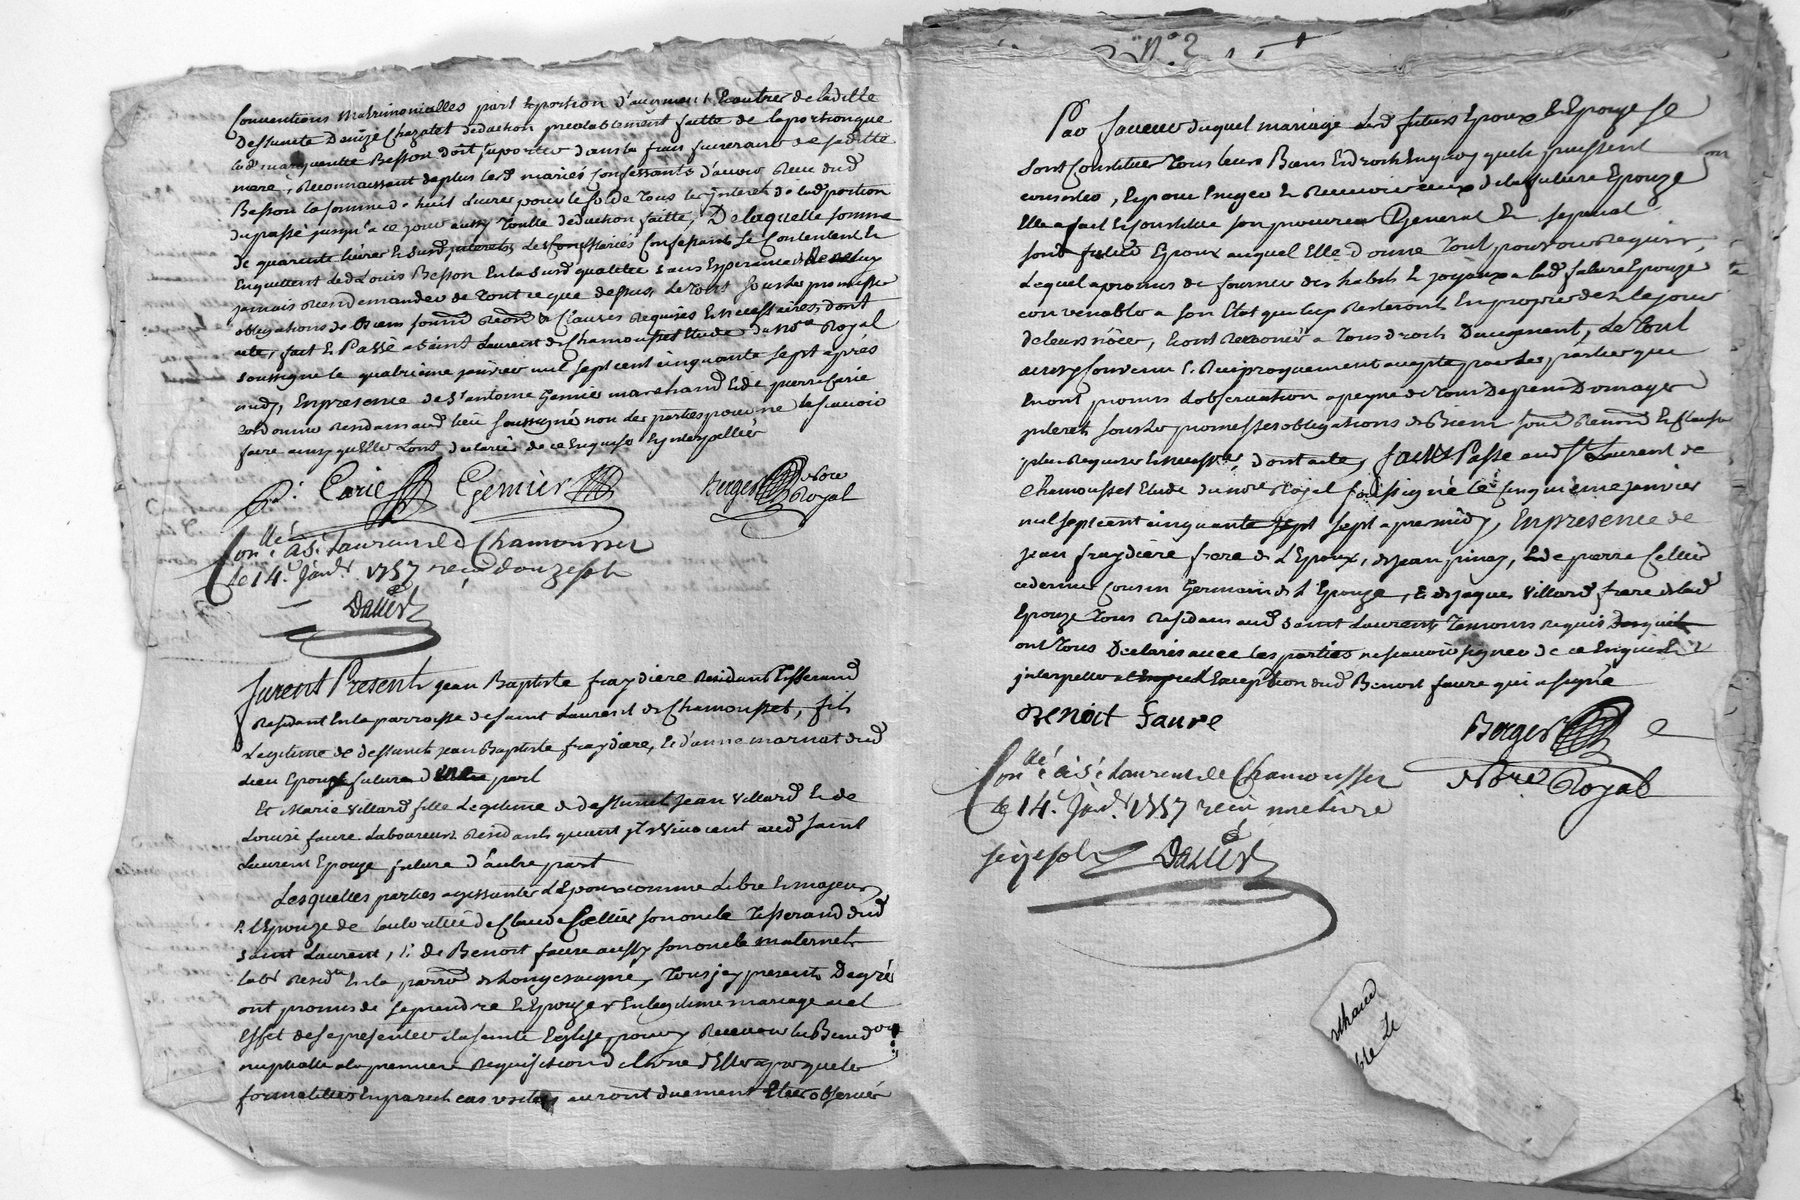 Conventions matrimonialles part & portion d'augment & autres de laditte
deffuncte Denize Chazatel deduction prealablement faitte de la portion que
led. marguantte Besson doit suporter dans les frais funeraires de sa ditte
mere, Reconnaissant de plus lesd. mariés confessants d'avoir Receu dud.
Besson la somme de huit Livres pour le solde de tous les jnterets de lad. portion
du passé jusqu'a ce jour aussy toutte deduction faitte, De laquelle somme
de quarente livres & surd. jnterets, Lesd. mariés Confessants se Contentent &
Enquittent led. Louis Besson En la surd. qualitée sans Esperance de
jamais Rien demander de tout ce que dessus, Le tout sous les promesses
obligations de Biens soum. Renon. & Clauses Requises & necessaires, dont
acte, fait & Passé a saint Laurent de Chamousset Etude du no.re Royal
soussigné le quatrieme janvier mil sept cent cinquante sept après
midy, En presence de S.r antoine Gemier marchand & de pierre Carie
cordonnier Residans aud. lieu soussignés non les parties pour ne le scavoir
faire ainsy qu'Elles l'ont declarés de ce Enquises & jnterpellées
P.re Carie Gemier Berger No.re
Royal
Con.llé à S.t Laurent de Chamousset
le 14.e Janv.r 1757 reçu douze sols
Dalier
furent Presents jean Baptiste fraydiere Tisserand
Residant En la parroisse de saint Laurent de Chamousset, fils
Legitime de deffunct jean Baptiste fraydiere, & d'anne marnat dud.
Lieu Epoux futur d'une part
Et Marie Villard fille Legitime de deffunct jean Villard & de
Louise faure Laboureurs Residants quant jls vivoient aud. saint
Laurent Epouze future d'autre part
Lesquelles parties agissantes L'Epoux comme Libre & majeur,
& L'Epouze de l'authorité de Claude Cellier son oncle Tisserand dud.
saint Laurent, & de Benoit faure aussy son oncle maternel
lab.r Resid.t En la parr. de Longesaigne, Tous jcy presents De gré
ont promis de se prendre & Epouzer En legitime mariage a cet
Effet de se presenter a la sainte Eglise, pour y Recevoir la Bened.on
nuptialle a la premiere Requisition de L'une d'Elles apres que les
formalittes En pareils cas usitées auront duement Etées observées
N.o 2
Pav faveur duquel mariage Lesd. futurs Epoux & Epouze se
sont Constitués tous leurs Biens & droits En quoy qu'ils puissent
consister, & pour Exiger & Recevoir ceux de la future Epouze
Elle a fait & Constitué son procureur General & special
sond. futur Epoux auquel Elle donne tout pouvoir Requis,
Lequel a promis de fournir des habits & joyaux a lad. future Epouze
convenable a son Etat qui luy Resteront En propre des le jour
de leurs nôces, & ont Renoncés a tous droits D'augment, Le tout
ainsy convenu & Reciproquement accepté par les parties qui
En ont promis L'observation a peyne de tous Depens Domages
jnterets sous les promesses obligations de Biens soum. Renon. & clauses
plus Requises & necess.res, dont acte, fait & Passé aud. S.t Laurent de
Chamousset Etude du no.re Royal soussigné le cinquieme janvier
mil sept cent cinquante sept apres midy, En presence de
jean fraydiere frere de L'Epoux, de jean pinay, & de pierre Cellier
ce dernier Cousin Germain de L'Epouze, & de jaques Villard frere de lad.
Epouze tous Residans aud. saint Laurent, Temoins requis
ont tous Declarés avec les parties ne scavoir signer de ce Enquis &
jnterpellés a L'exception dud. Benoit faure qui a signé
Benoit faure Berger
No.re Royal
Con.llé à S.t Laurent de Chamousset
le 14.e Janv.r 1757 reçu une livre
seize sols Dalier